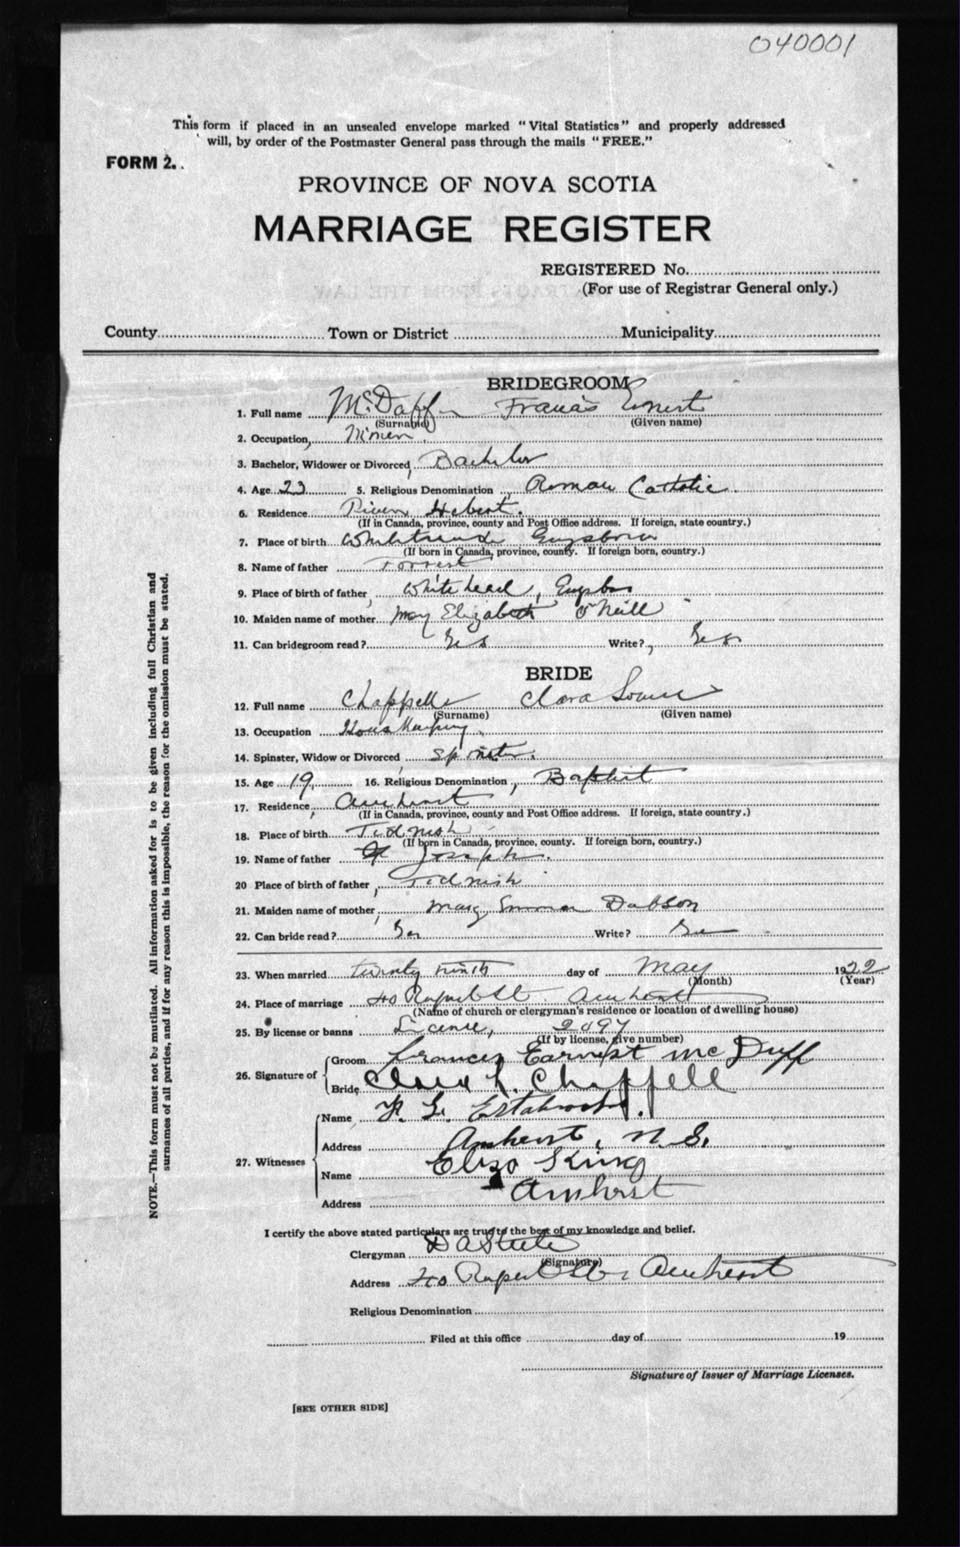 040001
This form if placed in an unsealed envelope marked "Vital Statistics" and properly addressed
will, by order of the Postmaster General pass through the mails "FREE."
FORM 2.
PROVINCE OF NOVA SCOTIA
MARRIAGE REGISTER
REGISTERED No.
(For use of Registrar General only.)
County Town or District Municipality
BRIDEGROOM
1. Full name McDaff Francis Ernest
(Surname) (Given name)
2. Occupation,
3. Bachelor, Widower or Divorced, Bachelor
4. Age 23 5. Religious Denomination, Roman Catholic
6. Residence River Hebert.
(If in Canada, province, county and Post Office address. If foreign, state country.)
7. Place of birth
(If born in Canada, province, county. If foreign born, country.)
8. Name of father Forrest
9. Place of birth of father, White head,
10. Maiden name of mother, May Elizabeth O'Neill
11. Can bridegroom read? Yes Write?, Yes
BRIDE
12. Full name Chappelle Clara Louise
(Surname) (Given name)
13. Occupation Housekeeping
14. Spinster, Widow or Divorced, Spinster.
15. Age 19, 16. Religious Denomination, Baptist
17. Residence, Amherst
(If in Canada, province, county and Post Office address. If foreign, state country.)
18. Place of birth Tidnish
(If born in Canada, province, county. If foreign born, country.)
19. Name of father Joseph.
20 Place of birth of father, Tidnish
21. Maiden name of mother, Mary Dobson
22. Can bride read? Yes Write? Yes
23. When married twenty ninth day of May 1922
(Month) (Year)
24. Place of marriage 40 Rupert St. Amherst
(Name of church or clergyman's residence or location of dwelling house)
25. By license or banns License, 2097
(If by license, give number)
26. Signature of Groom Francis Earnest McDuff
Bride Clara L. Chappell
27. Witnesses Name F. L. Estabrooks.
Address Amherst, N.S.
Name Eliza King
Address Amherst
I certify the above stated particulars are true to the best of my knowledge and belief.
Clergyman D A Steele
(Signature)
Address 40 Rupert St, Amherst
Religious Denomination
Filed at this office day of 19
Signature of Issuer of Marriage Licenses.
[SEE OTHER SIDE]
NOTE.—This form must not be mutilated. All information asked for is to be given including full Christian and
surnames of all parties, and if for any reason this is impossible, the reason for the omission must be stated.